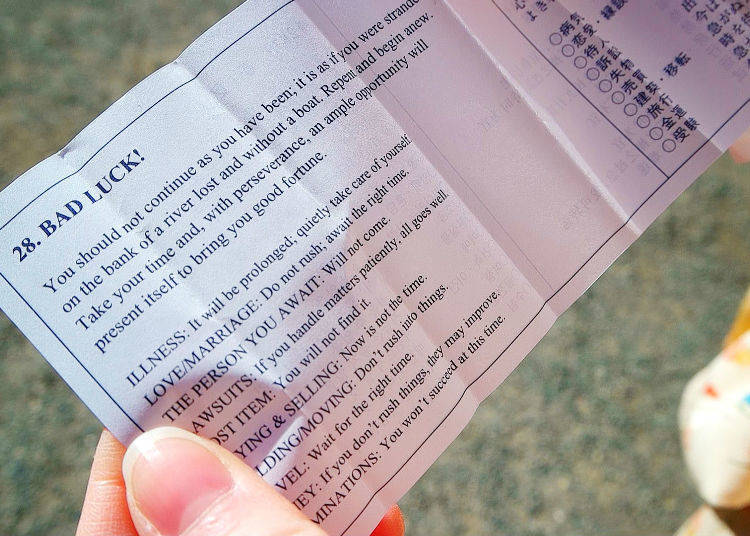 28. BAD LUCK!
You should not continue as you have been; it is as if you were
on the bank of a river lost and without a boat. Repent and begin anew.
Take your time and, with perseverance, an ample opportunity will
present itself to bring you good fortune.
ILLNESS: It will be prolonged; quietly take care of yourself
LOVE/MARRIAGE: Do not rush; await the right time.
THE PERSON YOU AWAIT: Will not come.
AWSUITS: If you handle matters patiently, all goes well
OST ITEM: You will not find it.
YING & SELLING: Now is not the time.
LDING/MOVING: Don't rush into things.
VEL: Wait for the right time.
EY: If you don't rush things, they may improve.
MINATIONS: You won't succeed at this time.
○病気
○恋愛・縁談
○待人
○訴訟
○失物
○売買
○建築・移転
○旅行
○金運
○受験